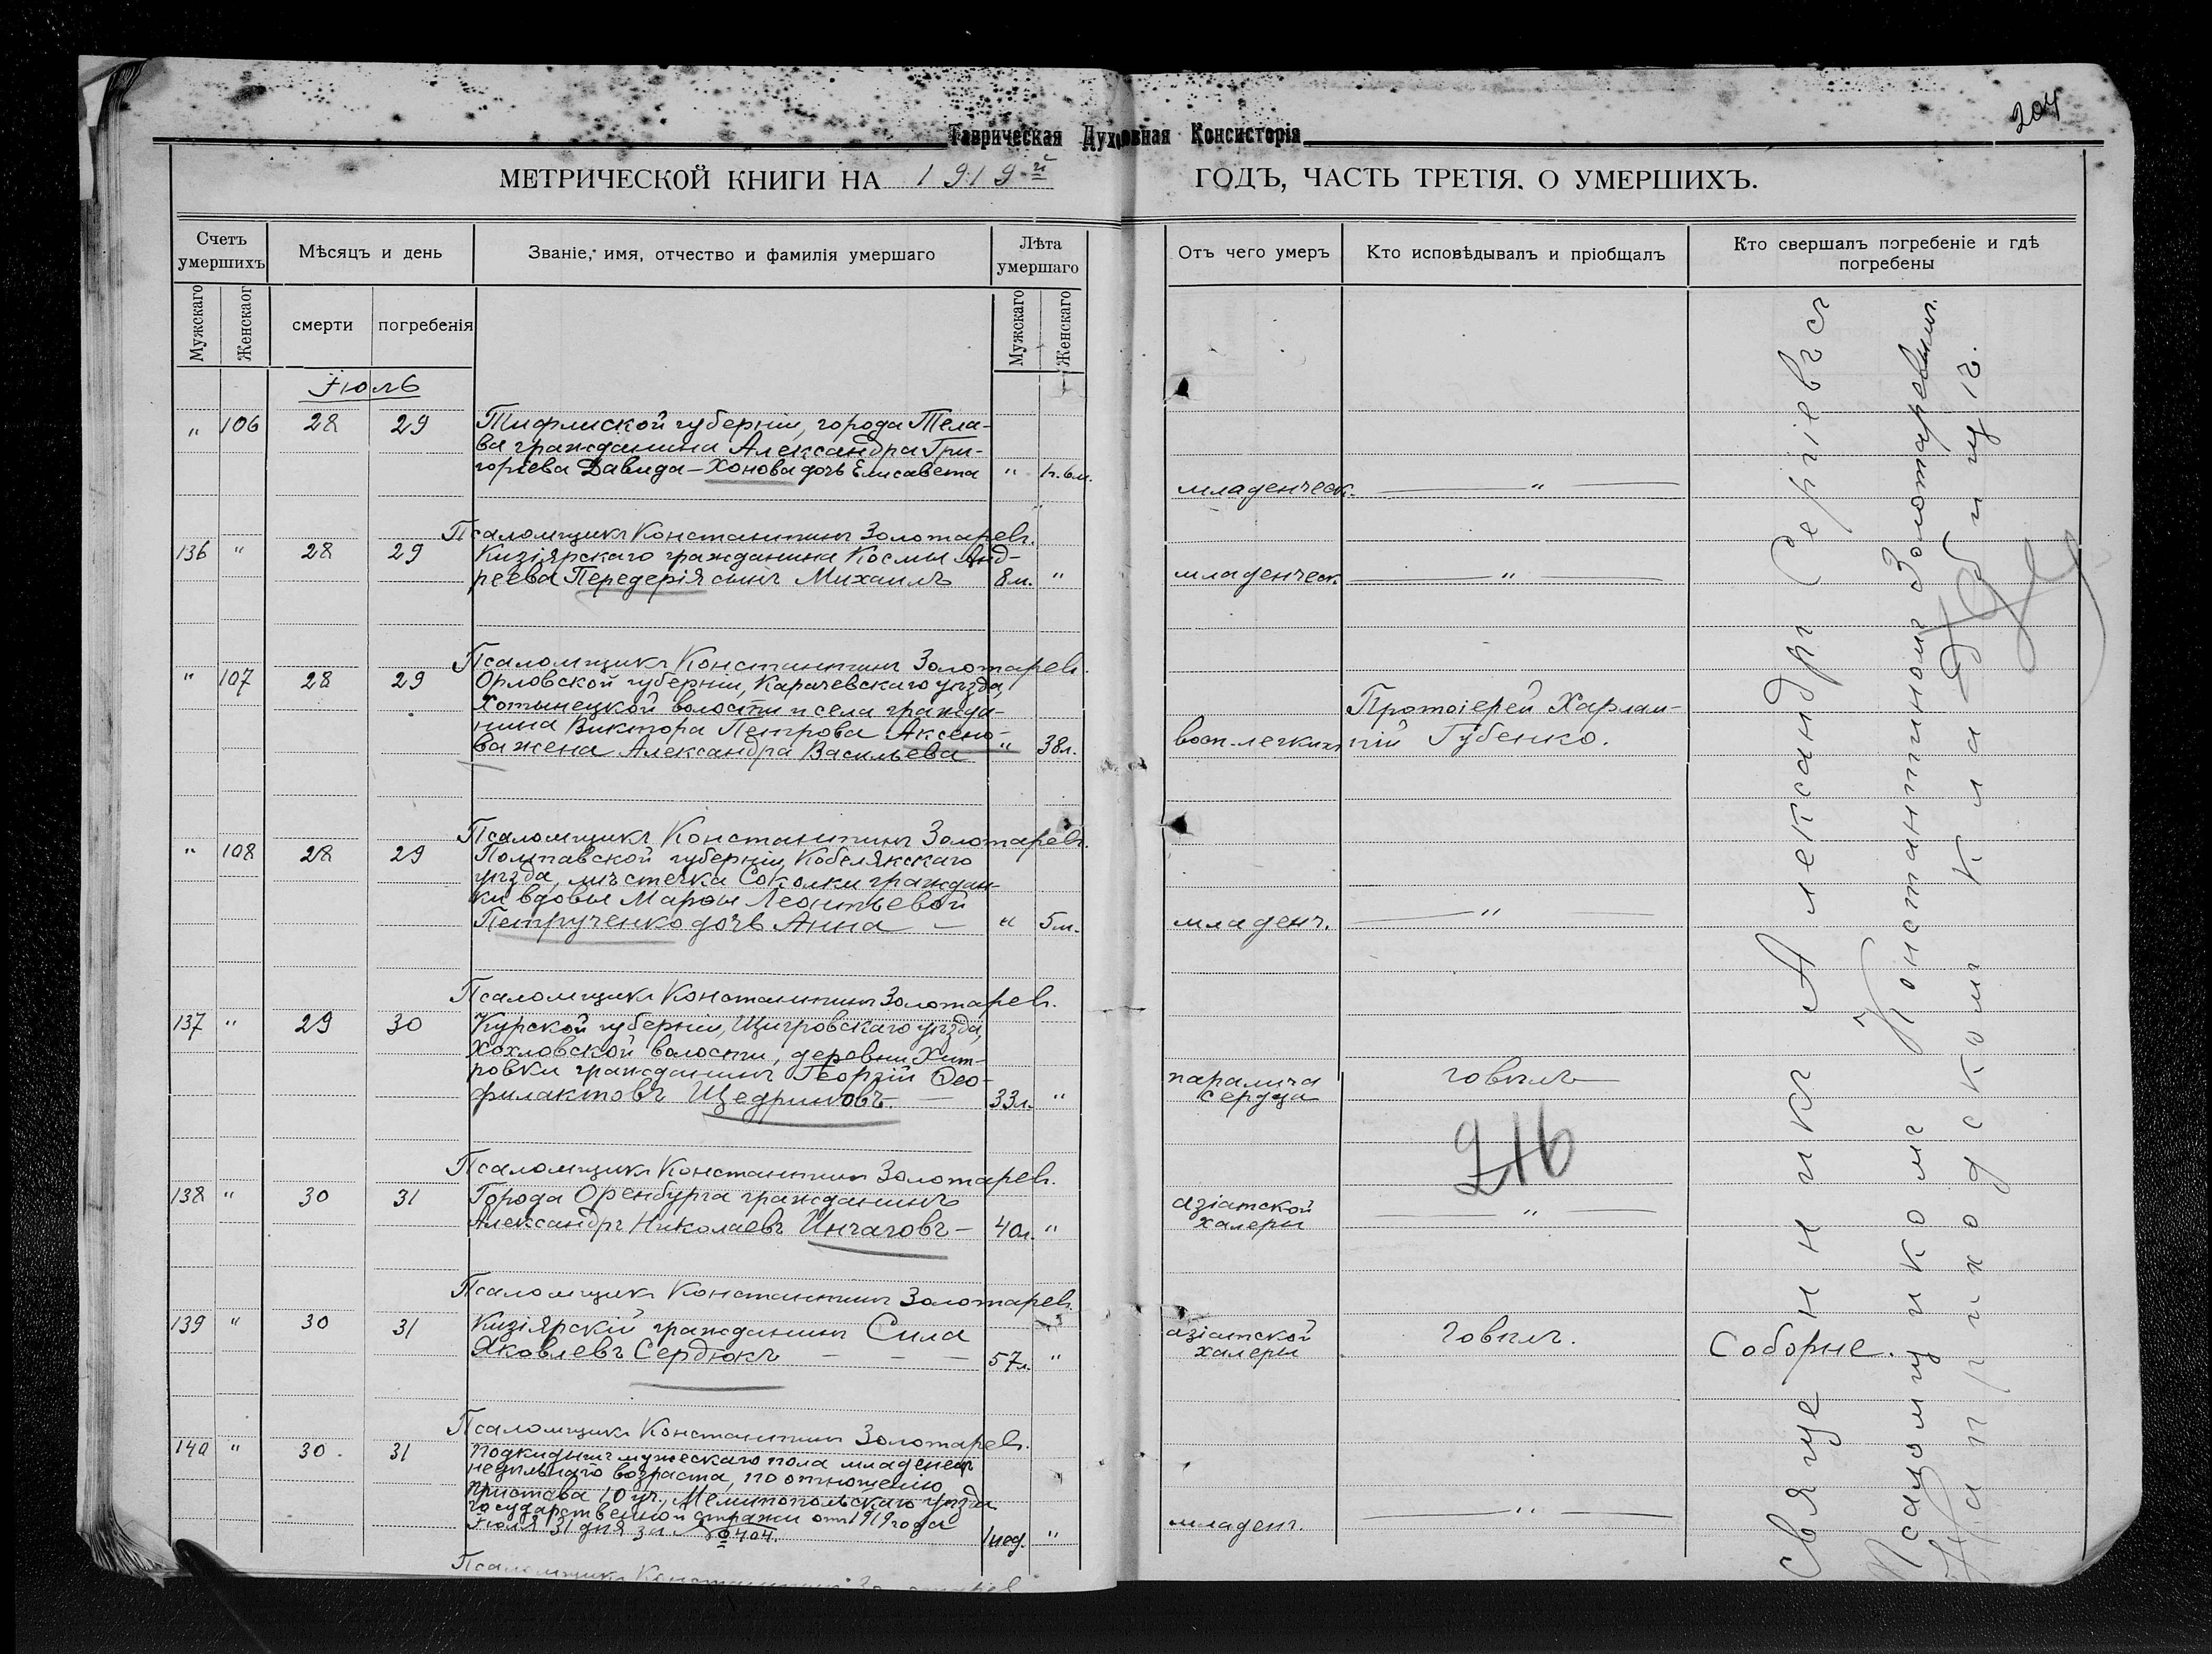 204
Таврическая Духовная Консисторія
МЕТРИЧЕСКОЙ КНИГИ НА 1919-й ГОДЪ, ЧАСТЬ ТРЕТІЯ. О УМЕРШИХЪ.
Счетъ умершихъ
Мѣсяцъ и день
Званіе, имя, отчество и фамилія умершаго
Лѣта умершаго
Отъ чего умеръ
Кто исповѣдывалъ и пріобщалъ
Кто свершалъ погребеніе и гдѣ погребены
Мужскаго
Женскаог
смерти
погребенія
Мужскаго
Женскаго
Іюль
„ 106 28 29 Тифлиской губерніи, города Тела-
ва гражданина Александра Гри-
горіева Давида-Хонова дочь Елисавета „ 1г. 6м. младенческ. „
Псаломщикъ Константинъ Золотаревъ.
136 „ 28 29 Кизіярскаго гражданина Космы Анд-
реева Передерія сынъ Михаилъ 8м. „ младенческ. „
Псаломщикъ Константинъ Золотаревъ.
„ 107 28 29 Орловской губерніи, Карачевскаго уѣзда,
Хотынецкой волости и села гражда-
нина Виктора Петрова Аксено-
ва жена Александра Васильева „ 38л. восп. легкихъ
Протоіерей Харлам-
пій Губенко.
Псаломщикъ Константинъ Золотаревъ.
„ 108 28 29 Полтавской губерніи, Кобелякскаго
уѣзда, мѣстечка Соколки граждан-
ки вдовы Марѳы Леонтьевой
Петрученко дочь Анна „ 5м. младенч. „
Псаломщикъ Константинъ Золотаревъ.
137 „ 29 30 Курской губерніи, Щигровскаго уѣзда,
Хохловской волости, деревни Хит-
ровки гражданинъ Георгій Ѳео-
филактовъ Щедриновъ. 33л. „
паралича
сердца
говѣлъ
216
Псаломщикъ Константинъ Золотаревъ.
138 „ 30 31 Города Оренбурга гражданинъ
Александръ Николаевъ Инчаговъ 40л. „
азіатской
халеры
„
Псаломщикъ Константинъ Золотаревъ.
139 „ 30 31 Кизіярскій гражданинъ Сила
Яковлевъ Сердюкъ 57л. „
азіатской
халеры
Говѣлъ.
Соборне.
Псаломщикъ Константинъ Золотаревъ.
140 „ 30 31 Подкидышъ мужескаго пола младенецъ
недѣльнаго возраста, по отношенію
пристава 10 уч., Мелитопольскаго уѣзда
государственной стражи отъ 1919 года
Іюля 31 дня за № 404. 1нед. „ младенч. „
Псаломщикъ Константинъ Золотаревъ
Священникъ Александръ Сергіевъ съ
Псаломщикомъ Константиномъ Золотаревымъ.
На приходскомъ кладбищѣ.